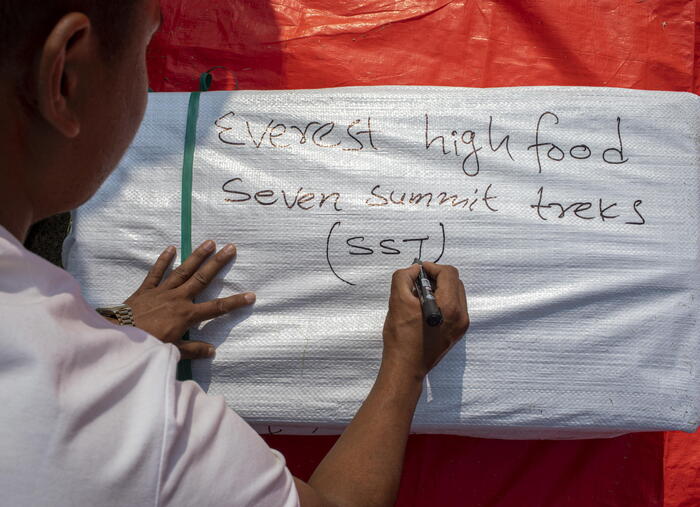 Everest high food
Seven summit treks
(SST)